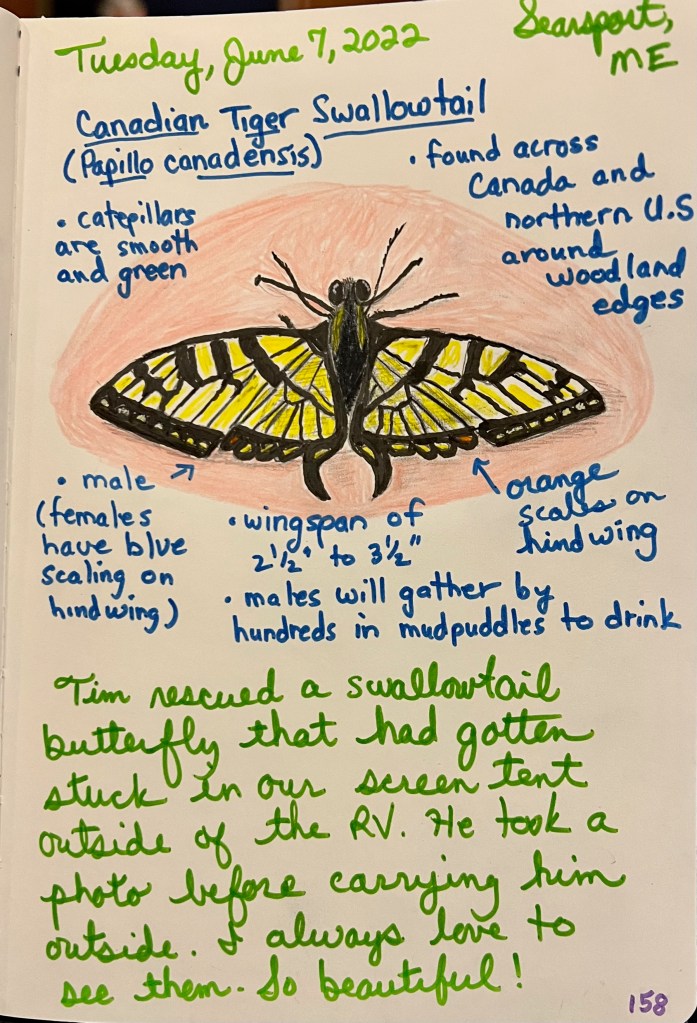 Tuesday, June 7, 2022
Searsport,
ME
Canadian Tiger Swallowtail
(Papillo canadensis)
• catepillars
are smooth
and green
• found across
Canada and
northern U.S
around
woodland
edges
• male
(females
have blue
scaling on
hindwing)
• wingspan of
2½" to 3½"
• males will gather by
hundreds in mudpuddles to drink
orange
scales on
hindwing
Tim rescued a swallowtail
butterfly that had gotten
stuck in our screen tent
outside of the RV. He took a
photo before carrying him
outside. I always love to
see them. So beautiful!
158